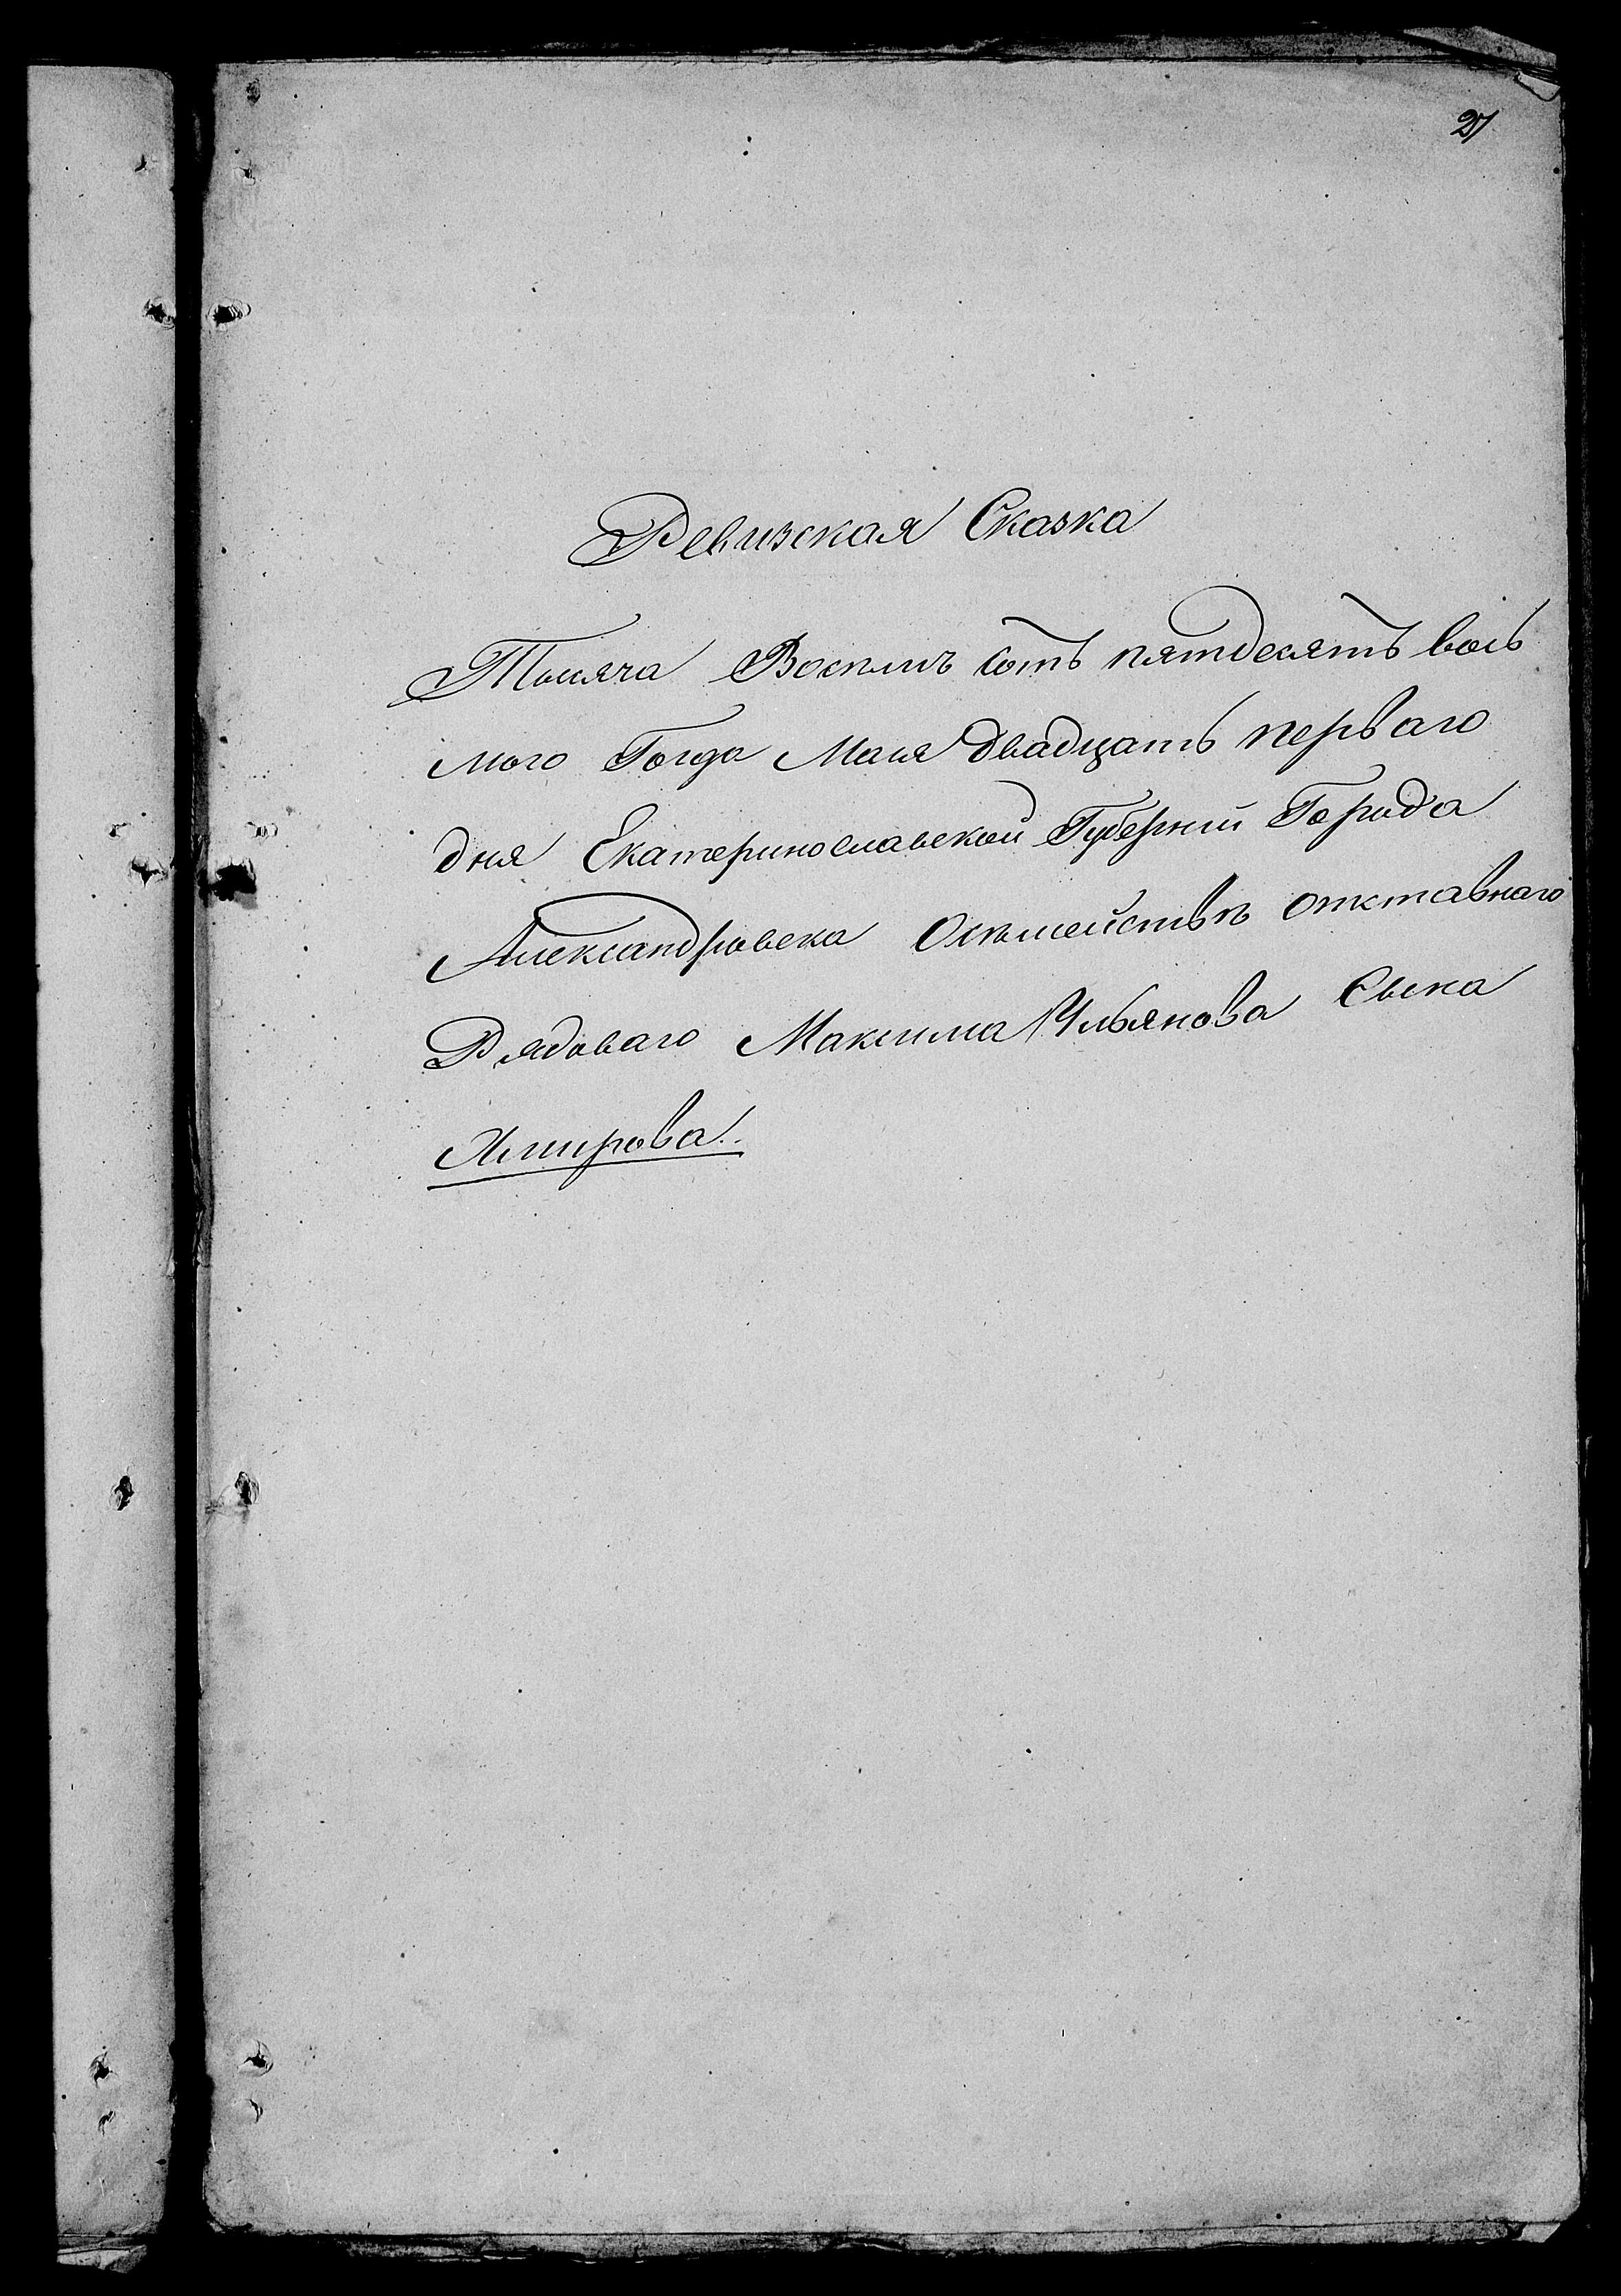 27
Ревизская Сказка
Тысяча Восемь сотъ пятдесятъ вось
мого Года Маия двадцать перваго
дня Екатеринославской Губерніи Города
Александровска Осемействѣ отставнаго
Рядоваго Максима Ульянова Сына